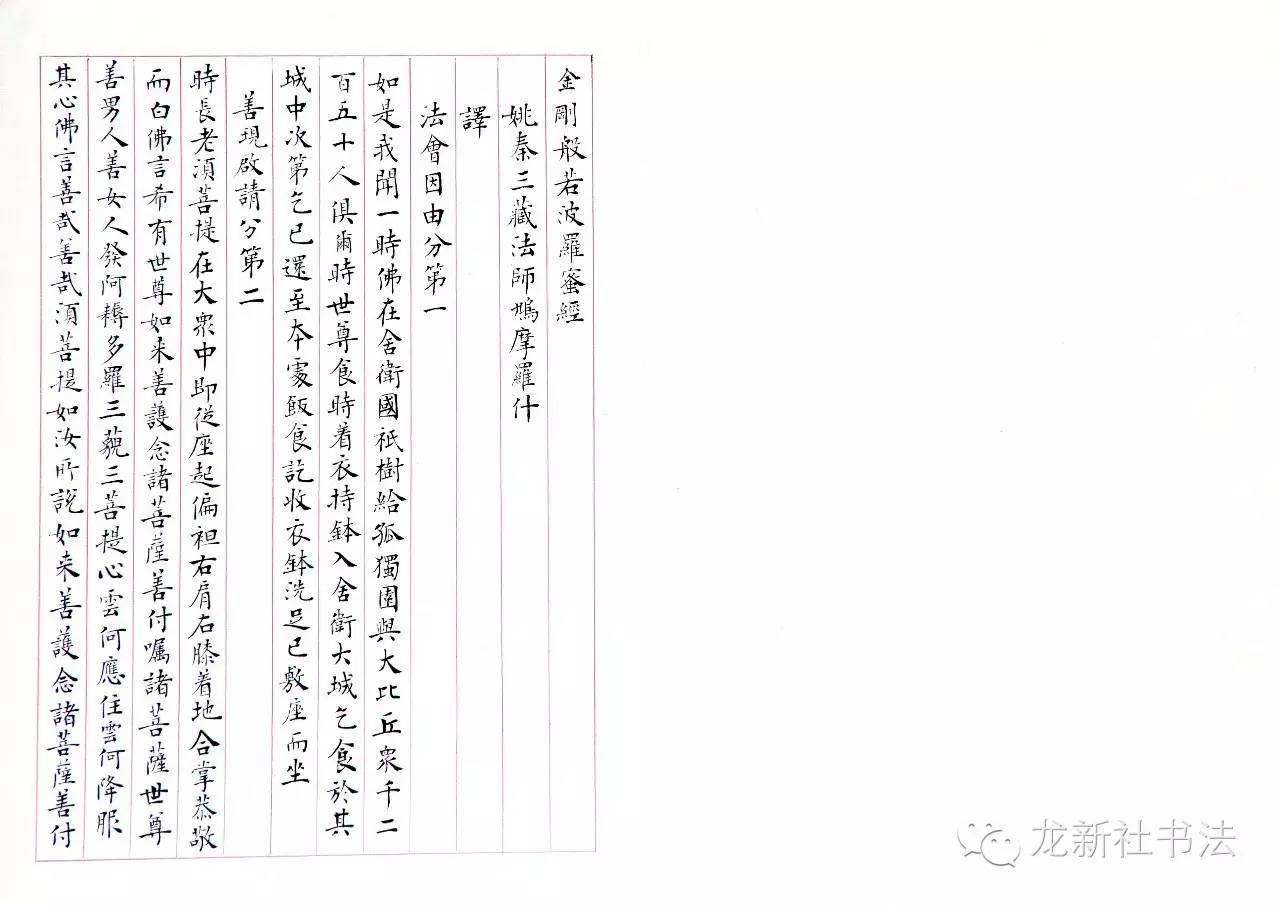 金剛般若波羅蜜經
姚秦三藏法師鳩摩羅什
譯
法會因由分第一
如是我聞一時佛在舍衛國祇樹給孤獨園與大比丘眾千二
百五十人俱爾時世尊食時着衣持鉢入舍衛大城乞食於其
城中次第乞已還至本處飯食訖收衣鉢洗足已敷座而坐
善現啟請分第二
時長老須菩提在大眾中即從座起偏袒右肩右膝着地合掌恭敬
而白佛言希有世尊如来善護念諸菩薩善付囑諸菩薩世尊
善男人善女人發阿耨多羅三藐三菩提心雲何應住雲何降服
其心佛言善哉善哉須菩提如汝所說如来善護念諸菩薩善付
龙新社书法